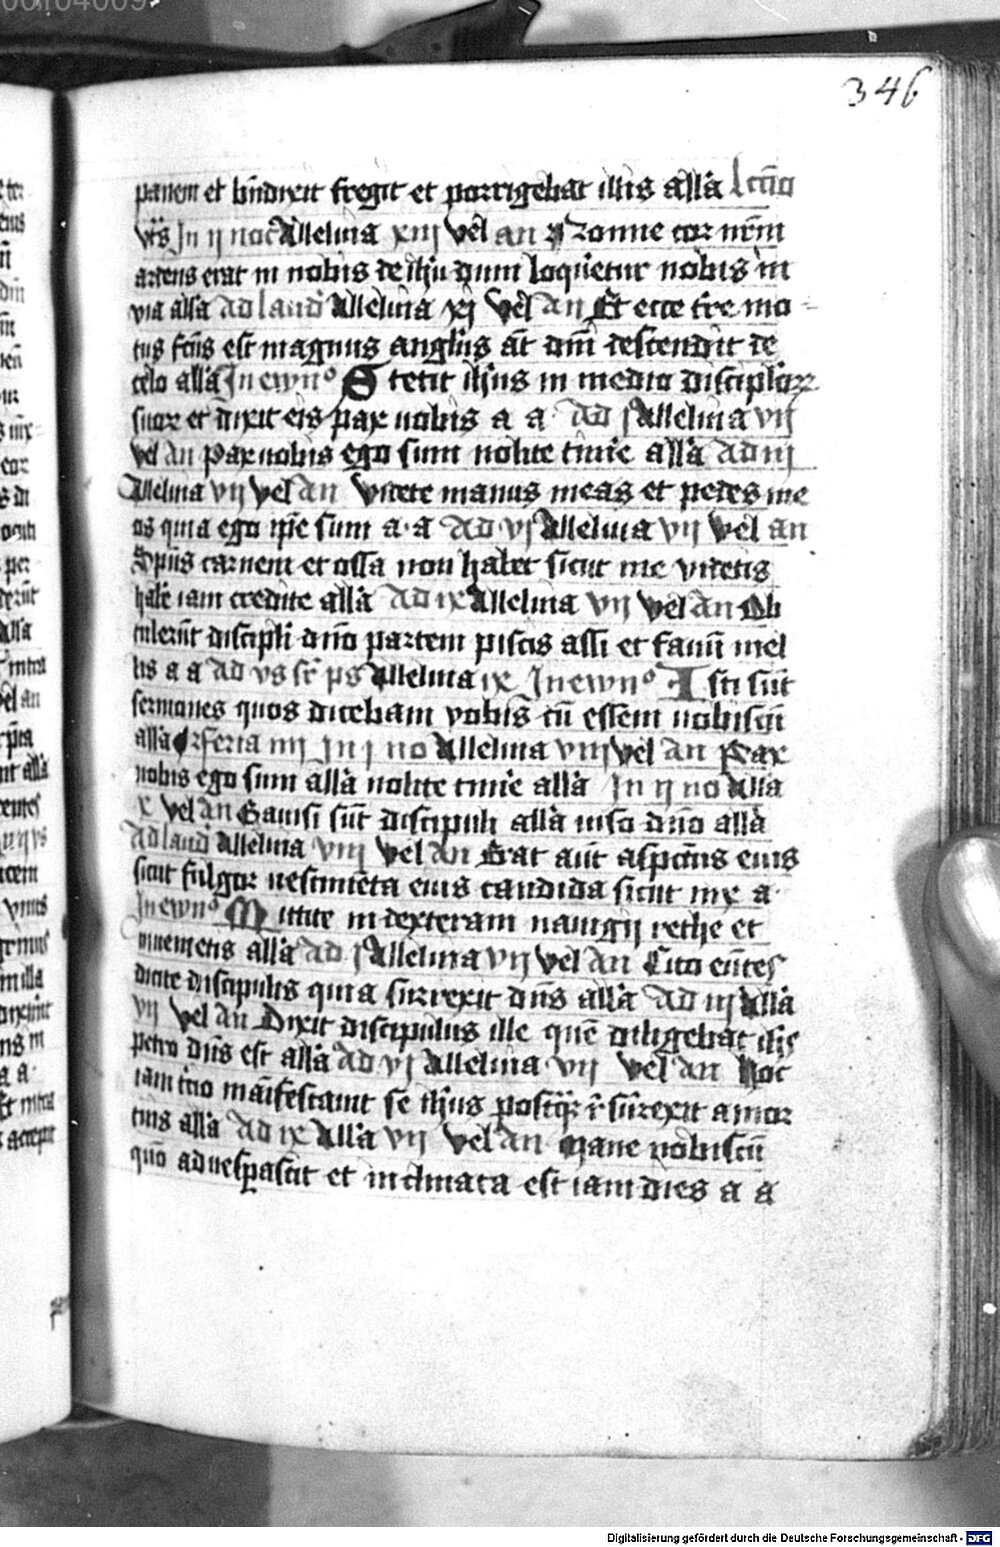 346
panem et bn̄dixit fregit et porrigebat illis allā Lectio
vr̄s In ij noc̄ Alleluia xiij vel an Nonne cor nr̄m
ardens erat in nobis de ihū dum loquetur nobis in
via allā Ad laud Alleluia xj vel an Et ecce tre mo
tus fc̄us est magnus anglus āt dnī descendit de
celo allā In ewnᵒ Stetit ihus in medio discipulor
suor et dixit eis pax vobis a a Ad j Alleluia vij
vel an Pax vobis ego sum nolite timē allā Ad iij
Alleluia vij vel an Videte manus meas et pedes me
os quia ego ip̄e sum a a Ad vj Alleluia vij vel an
Spūs carnem et ossa non habet sicut me videtis
habē iam credite allā Ad ix Alleluia vij vel an Ob
tulerūt discipli dn̄o partem piscis assi et favū mel
lis a a Ad vs sr̄ ps Alleluia ix In ewnᵒ Isti sūt
sermones quos dicebam vobis cū essem vobiscū
allā feria iiij In j no Alleluia viij vel an Pax
vobis ego sum allā nolite timē allā In ij no Alla
x vel an Gavisi sūt discipuli allā viso dn̄o allā
Ad laud Alleluia viij vel an Erat aūt aspectus eius
sicut fulgor vestimēta eius candida sicut nix a
In ewnᵒ Mittite in dexteram navigij rethe et
invenietis allā Ad j Alleluia vij vel an Cito eūtes
dicite discipulis quia surrexit dn̄s allā Ad iij Allā
vij vel an Dixit discipulus ille quē diligebat ihs
petro dn̄s est allā Ad vj Alleluia vij vel an Hoc
iam tercio manifestavit se ihus postq̄ sūrexit a mor
tuis allā Ad ix Allā vij vel an Mane nobiscū
quō advespascit et inclinata est iam dies a a
Digitalisierung gefördert durch die Deutsche Forschungsgemeinschaft - DFG